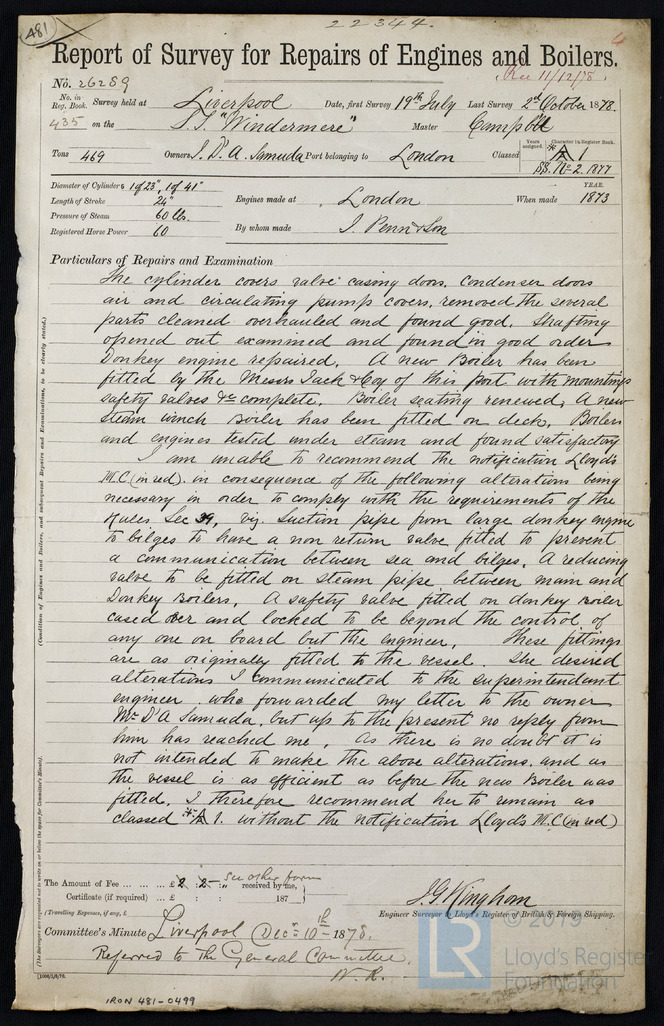 481
22344.
4
Report of Survey for Repairs of Engines and Boilers.
No. 26289
Rec 11/12/78.
No. in Reg. Book. Survey held at Liverpool Date, first Survey 19th July Last Survey 2nd October 1878.
435 on the S.S. "Windermere" Master Campbell
Tons 469 Owners J. D'A. Samuda Port belonging to London Classed Years assigned. Character in Register Book. A 1
SS. No 2. 1877
Diameter of Cylinders 1 of 23", 1 of 41"
Length of Stroke 24"
Pressure of Steam 60 lbs.
Registered Horse Power 60
Engines made at London When made YEAR. 1873
By whom made J. Penn & Son
Particulars of Repairs and Examination
The cylinder covers valve casing doors, condenser doors
air and circulating pump covers, removed the several
parts cleaned overhauled and found good. Shafting
opened out examined and found in good order
Donkey engine repaired. A new Boiler has been
fitted by the Messrs Jack & Coy of this port with mountings
safety valves &c complete. Boiler seating renewed, A new
steam winch Boiler has been fitted on deck. Boilers
and engines tested under steam and found satisfactory
I am unable to recommend the notification Lloyd's
M.C. (in red). in consequence of the following alterations being
necessary in order to comply with the requirements of the
Rules Sec 39, viz Suction pipe from large donkey engine
to bilges to have a non return valve fitted to prevent
a communication between sea and bilges. A reducing
valve to be fitted on steam pipe between main and
Donkey Boilers. A safety valve fitted on donkey boiler
cased over and locked to be beyond the control of
any one on board but the engineer. These fittings
are as originally fitted to the vessel. The desired
alterations I communicated to the superintendant
engineer. who forwarded my letter to the owner
Mr D'A Samuda, but up to the present no reply from
him has reached me. As there is no doubt it is
not intended to make the above alterations, and as
the vessel is as efficient as before the new Boiler was
fitted. I therefore recommend her to remain as
classed A 1. without the notification Lloyd's M.C (in red)
The Amount of Fee ... ... ... £2 2 - : see other form received by me,
Certificate (if required) ... £ : : 187
(Travelling Expenses, if any, £
J. G. Kingham
Engineer Surveyor to Lloyd's Register of British & Foreign Shipping.
Committee's Minute Liverpool Decr 10th 1878.
Referred to The General Committee.
W. R.
(Condition of Engines and Boilers, and subsequent Repairs and Examinations, to be clearly stated.)
(The Surveyors are requested not to write on or below the space for Committee's Minute).
IRON 481-0499
LR
© 2019
Lloyd's Register
Foundation